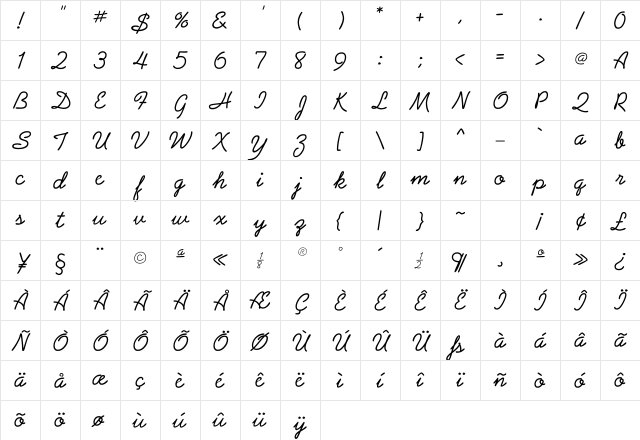 ! " # $ % & ' ( ) * + , - . / 0
1 2 3 4 5 6 7 8 9 : ; < = > @ A
B D E F G H I J K L M N O P Q R
S T U V W X Y Z [ \ ] ^ _ ` a b
c d e f g h i j k l m n o p q r
s t u v w x y z { | } ~ ¡ ¢ £
¥ § ¨ © ª « ⅛ ® ° ´ ½ ¶ ¸ º » ¿
À Á Â Ã Ä Å Æ Ç È É Ê Ë Ì Í Î Ï
Ñ Ò Ó Ô Õ Ö Ø Ù Ú Û Ü ß à á â ã
ä å æ ç è é ê ë ì í î ï ñ ò ó ô
õ ö ø ù ú û ü ÿ